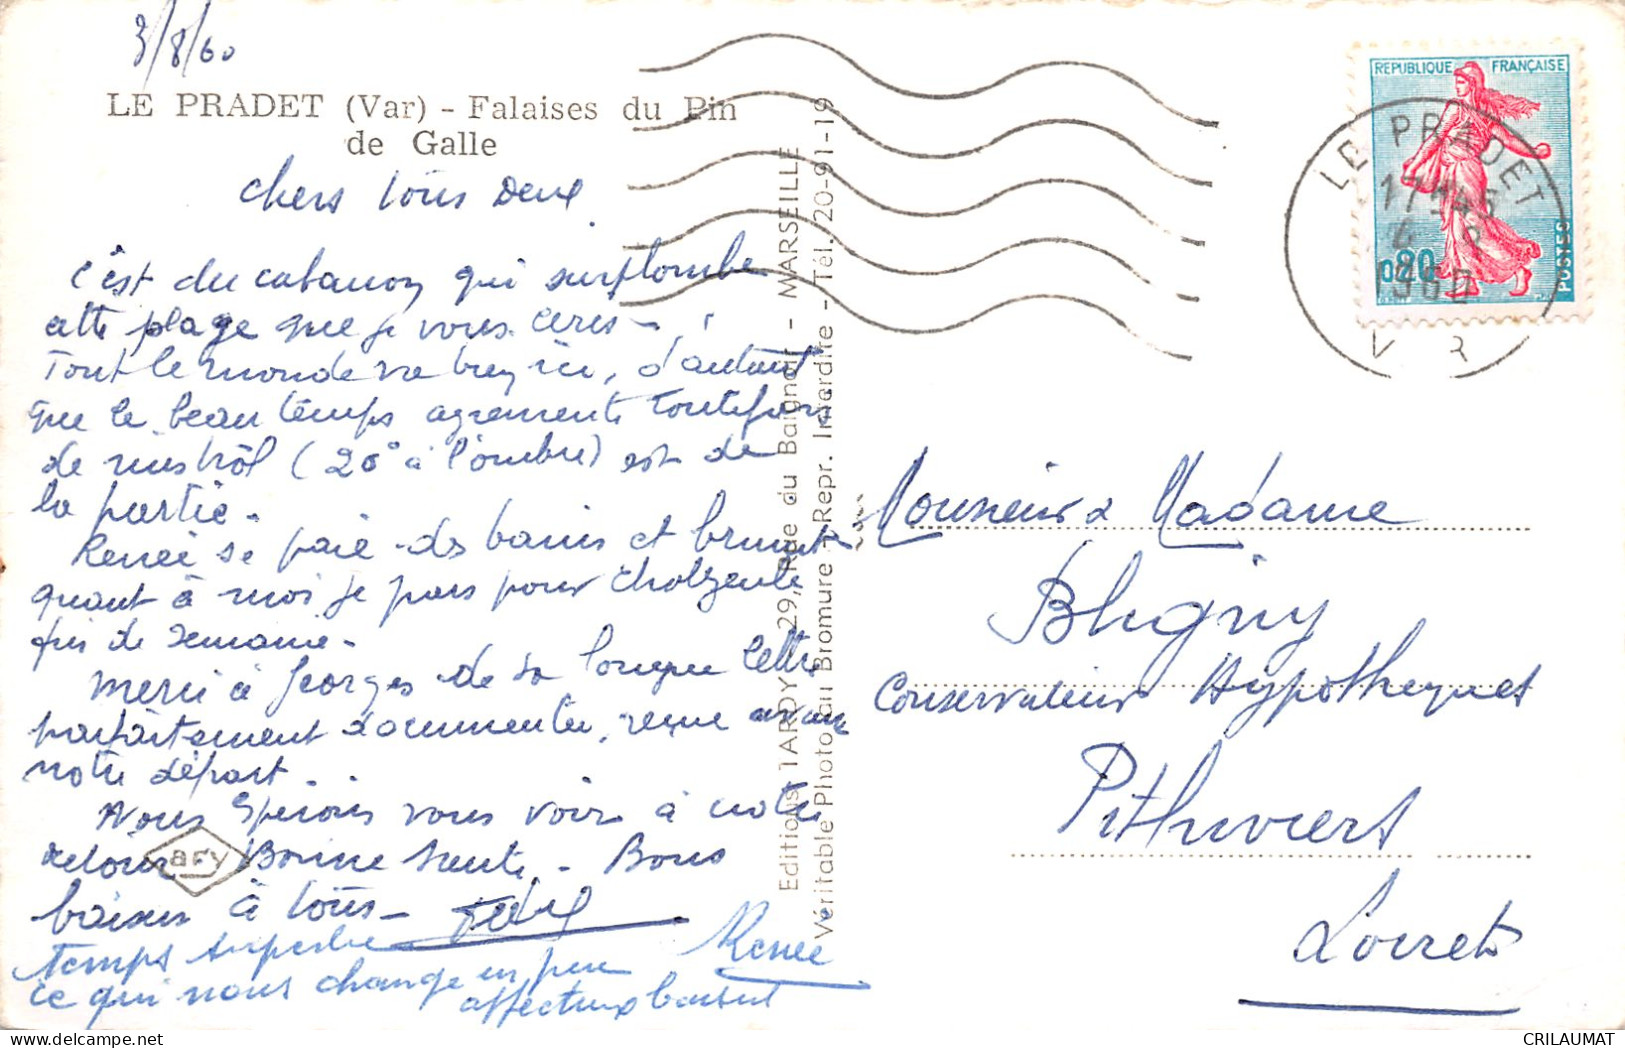 3/8/60
LE PRADET (Var) - Falaises du Pin
de Galle
Chers tous Deux
C'est du cabanon qui surplombe
cette plage que je vous écris -
Tout le monde va bien ici, d'autant
que le beau temps agrémenté toutefois
de mistrôl (20° à l'ombre) est de
la partie.
Renée se paie des bains et brunit
quant à moi je pars pour
fin de semaine -
Merci à Georges de sa longue lettre
parfaitement documentée, reçue avant
notre départ -
Nous espérons vous voir à notre
retour Bonne santé - Bons
baisers à tous -
temps superbe Renée
ce qui nous change un peu
affectueux baisers
aRy
Editions TARDY - 29, Rue du Baignoir - MARSEILLE
Véritable Photo au Bromure - Repr. Interdite - Tél. 20-91-19
REPUBLIQUE FRANÇAISE
0,20
POSTES
LE PRADET
17H45
4 - 8
1960
V R
Monsieur & Madame
Bligny
Conservateur Hypothèques
Pithiviers
Loiret
CRILAUMAT